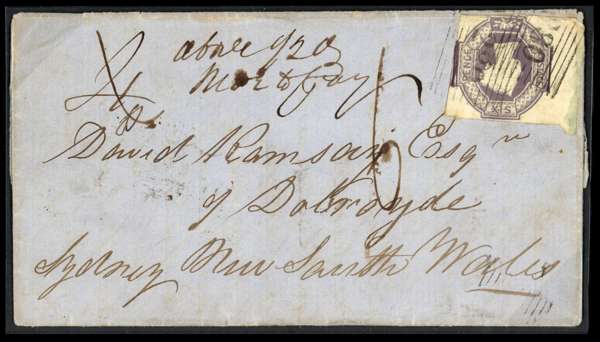 above ½ oz
More to Pay
David Ramsay Esqr
of Dobroyde
Sydney New South Wales
PENCE